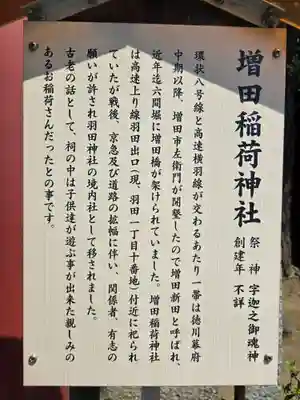 増田稲荷神社
祭神 字迦之御魂神
創建年 不詳
環状八号線と高速横羽線が交わるあたり一帯は徳川幕府
中期以降、増田市左衛門が開墾したので増田新田と呼ばれ、
近年迄六間堀に増田橋が架けられていました。増田稲荷神社
は高速上り線羽田出口(現、羽田一丁目十番地)付近に祀られ
ていたが戦後、京急及び道路の拡幅に伴い、関係者、有志の
願いが許され羽田神社の境内社として移されました。
古老の話として、祠の中は子供達が遊ぶ事が出来た親しみの
あるお稲荷さんだったとの事です。